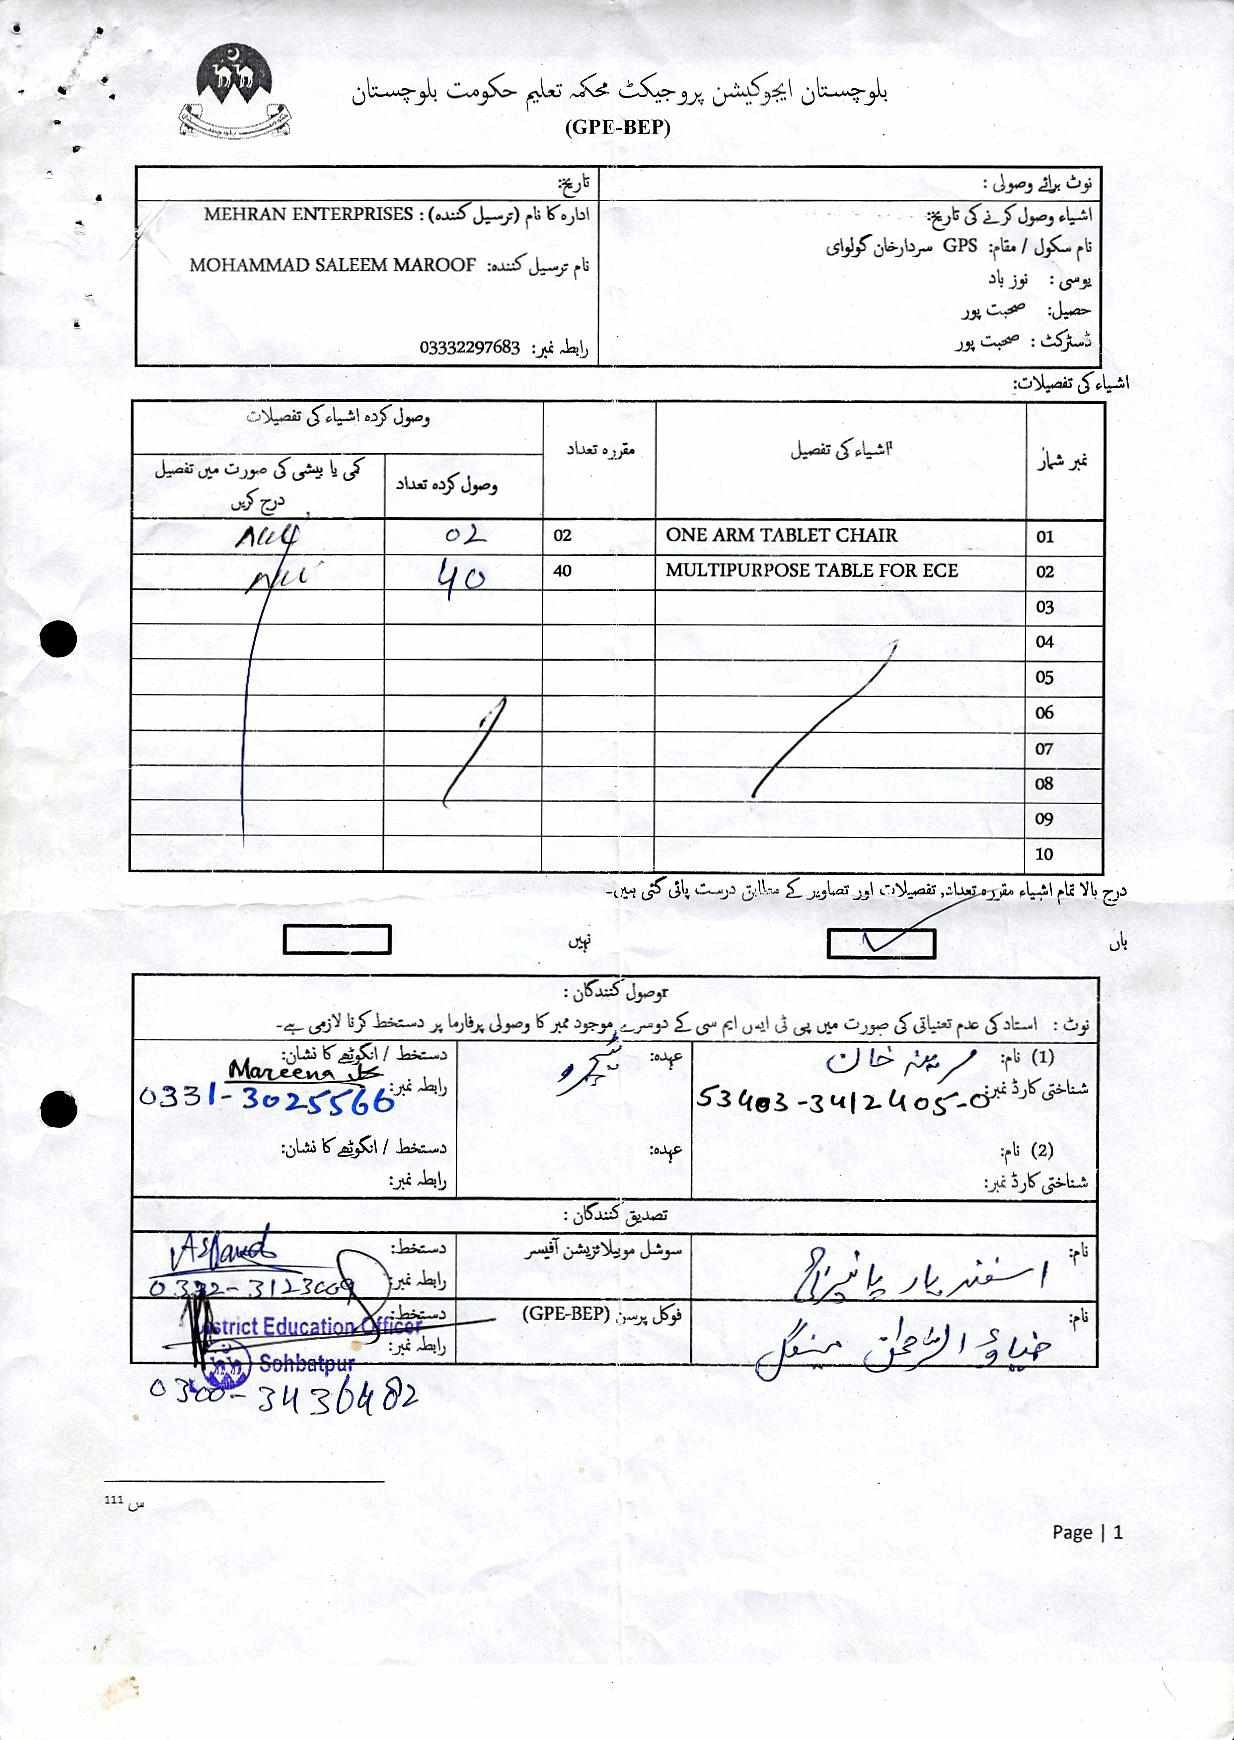 بلوچستان ایجوکیشن پروجیکٹ محکمہ تعلیم حکومت بلوچستان
(GPE-BEP)
نوٹ برائے وصولی :
تاریخ:
اشیاء وصول کرنے کی تاریخ:
نام سکول / مقام: GPS سردارخان گولوای
یوسی : نوز باد
حصیل: صحبت پور
ڈسٹرکٹ : صحبت پور
ادارہ کا نام (ترسیل کنندہ) : MEHRAN ENTERPRISES
نام ترسیل کنندہ: MOHAMMAD SALEEM MAROOF
رابطہ نمبر: 03332297683
اشیاء کی تفصیلات:
نمبر شمار اشیاء کی تفصیل مقررہ تعداد وصول کردہ اشیاء کی تفصیلات
وصول کردہ تعداد کمی یا بیشی کی صورت میں تفصیل درج کریں
01 ONE ARM TABLET CHAIR 02 02
02 MULTIPURPOSE TABLE FOR ECE 40 40
03
04
05
06
07
08
09
10
درج بالا تمام اشیاء مقررہ تعداد, تفصیلات اور تصاویر کے مطابق درست پائی گئی ہیں۔
ہاں نہیں
وصول کنندگان :
نوٹ : استاد کی عدم تعنیاتی کی صورت میں پی ٹی ایس ایم سی کے دوسرے موجود ممبر کا وصولی پرفارما پر دستخط کرنا لازمی ہے۔
(1) نام: مرینہ خان
شناختی کارڈ نمبر: 53403-3412405-0
عہدہ: ٹیچر
دستخط / انگوٹھے کا نشان: Mareena
رابطہ نمبر: 0331-3025566
(2) نام:
شناختی کارڈ نمبر:
عہدہ:
دستخط / انگوٹھے کا نشان:
رابطہ نمبر:
تصدیق کنندگان :
نام: اسفند یار
سوشل موبیلائزیشن آفیسر
دستخط:
رابطہ نمبر: 0332-3123009
نام: ضیاء الرحمٰن مینگل
فوکل پرسن (GPE-BEP)
دستخط:
District Education Officer
رابطہ نمبر:
Sohbatpur
0300-3436482
س 111
Page | 1